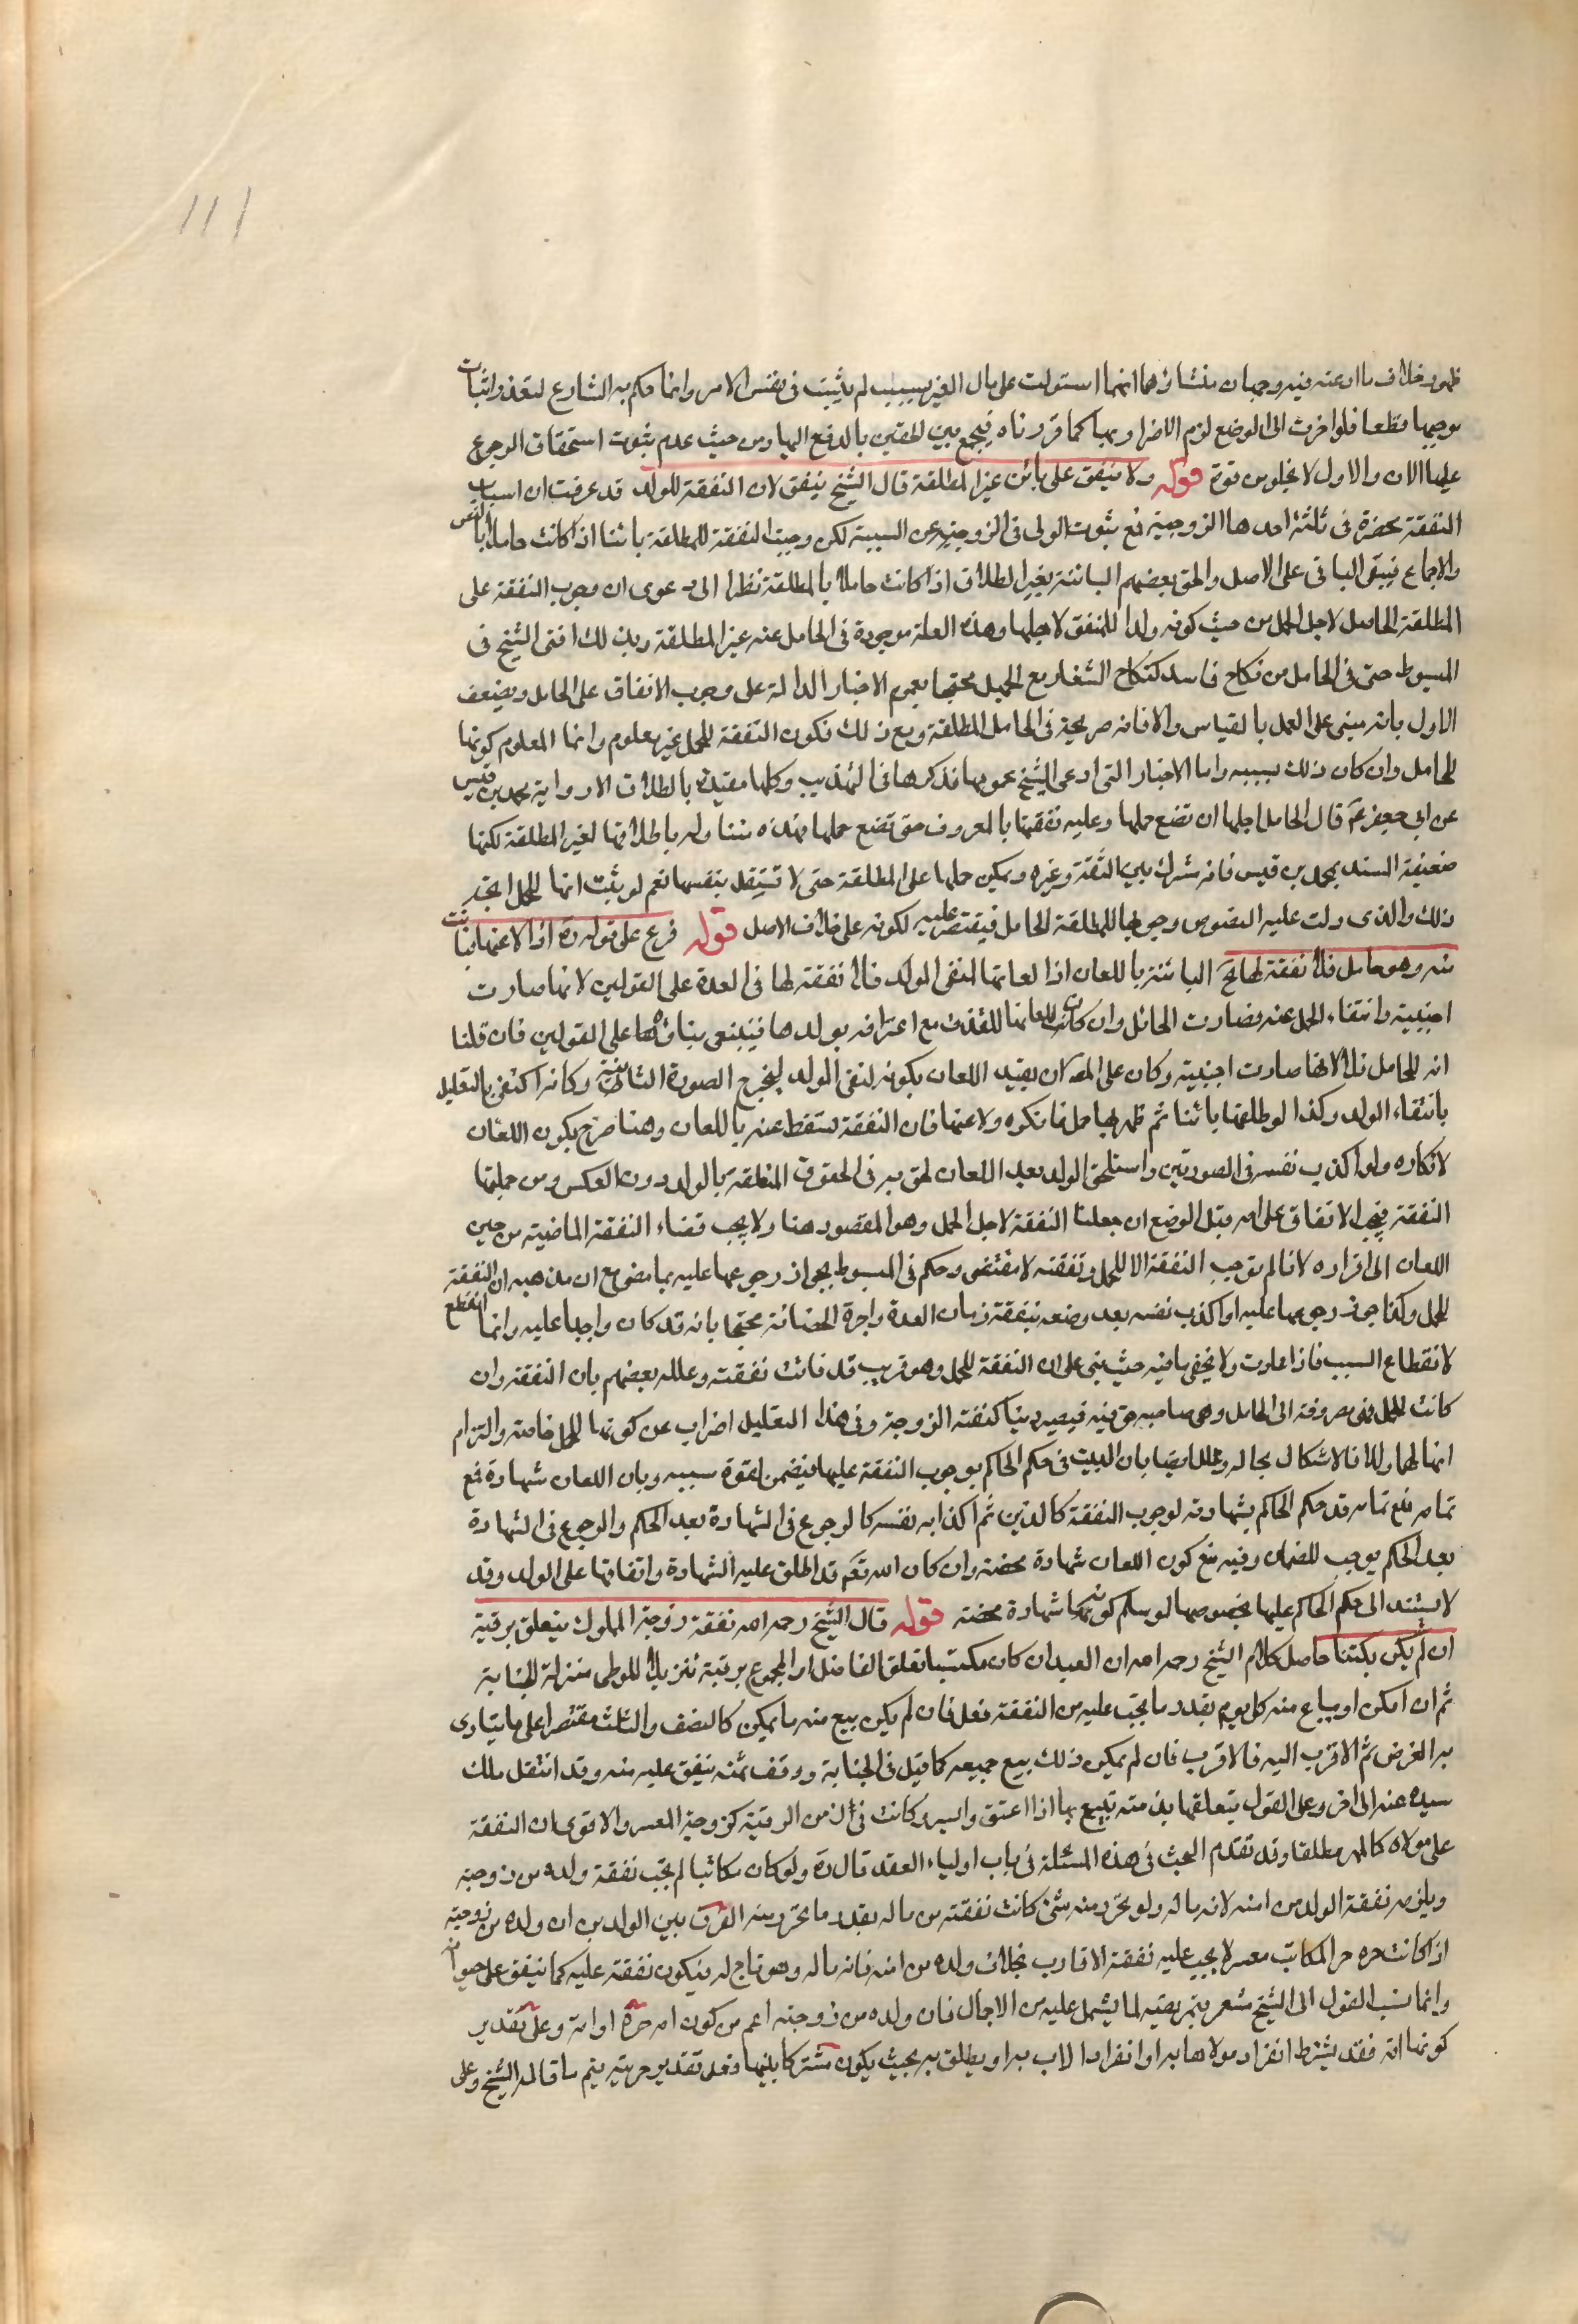 111
ظهور خلاف ما ادعته فيه وجهان منشاؤهما انها استولت على مال الغير بسبب لم يثبت في نفس الامر وانما حكم به الشارع لتعذر اثبات
موجبها قطعا فلو اخرت الى الوضع لزم الاضرار بها كما قررناه فيجمع بين الحقين بالدفع اليها ومن حيث عدم ثبوت استحقاق الرجوع
عليها الان والاول لا يخلو من قوة قوله ولا ينفق على بائن غير المطلقة قال الشيخ ينفق لان النفقة للولد قد عرفت ان اسباب
النفقة منحصرة في ثلثة احدها الزوجية فمع بينونت الزوجية عن السببية لكن وجبت النفقة للمطلقة بائنا اذا كانت حاملا بالنص
والاجماع فيبقى الباقي على الاصل والحق بعضهم البائنة بغير الطلاق اذا كانت حاملا بالمطلقة نظرا الى دعوى ان وجوب النفقة على
المطلقة الحامل لاجل الحمل من حيث كونه ولدا للمنفق لاجلها وهذه العلة موجودة في الحامل عنه غير المطلقة وبذلك افتى الشيخ في
المبسوط حتى في الحامل من نكاح فاسد كنكاح الشغار مع الجهل محتجا بعموم الاخبار الدالة على وجوب الانفاق على الحامل ويضعف
الاول بانه مبني على العمل بالقياس والا فانه صريحة في الحامل المطلقة ومع ذلك فكون النفقة للحمل غير معلوم وانما المعلوم كونها
للحامل وان كان ذلك بسببه واما الاخبار التي ادعى الشيخ عمومها فذكرها في التهذيب وكلها مقيدة بالطلاق الا رواية محمد بن قيس
عن ابي جعفر ع قال الحامل اجلها ان تضع حملها وعليه نفقتها بالمعروف حتى تضع حملها فهذه متناوله باطلاقها لغير المطلقة لكنها
ضعيفة السند بمحمد بن قيس فانه مشترك بين الثقة وغيره ويمكن حملها على المطلقة حتى لا تستقل بنفسها نعم لو يثبت انها للحمل اتجه
ذلك والذي دلت عليه النصوص وجوبها للمطلقة الحامل فيقتصر عليه لكونه على خلاف الاصل قوله فرع على قوله ره اذا لاعنها فبانت
منه وهو حامل فلا نفقة لها الخ البائنة باللعان اذا لعانها لنفي الولد فلا نفقة لها في العدة على القولين لانها صارت
اجنبية وانتفاء الحمل عنه فصارت الحائل وان كان لعانها للقذف مع اعترافه بولدها فينبغي بناؤها على القولين فان قلنا
انه للحامل فلا لانها صارت اجنبية وكان على المص ان يقيد اللعان بكونه لنفي الولد ليخرج الصورة الثانية وكانه اكتفى بالتعليل
بانتفاء الولد وكذا لو طلقها بائنا ثم ظهر بها حمل فانكره ولاعنها فان النفقة تسقط عنه باللعان وهنا صرح بكون اللعان
لانكاره ولو اكذب نفسه في الصورتين واستلحق الولد بعد اللعان لحق به في الحقوق المتعلقة بالولد دون العكس ومن جملتها
النفقة فيجب الانفاق على امه قبل الوضع ان جعلنا النفقة لاجل الحمل وهو المقصود هنا ولا يجب قضاء النفقة الماضية من حين
اللعان الى اقراره لانا لم نوجب النفقة الا للحمل ونفقته لا تقتضى وحكم في المبسوط بجواز رجوعها عليه بما مضى مع ان مذهبه ان النفقة
للحمل وكذا جوز رجوعها عليه لو اكذب نفسه بعد وضعه بنفقة زمان العدة واجرة الحضانة محتجا بانه قد كان واجبا عليه وانما انقطع
لانقطاع السبب فاذا عادت ولا يخفى ما فيه حيث بنى على ان النفقة للحمل وهو قريب قد فاتت نفقته وعلله بعضهم بان النفقة وان
كانت للحمل فهي مصروفة الى الحامل وهي صاحبه حق فيه فيصير دينا كنفقة الزوجة وفي هذا التعليل اضراب عن كونها للحمل خاصة والتزام
انها لها وله فالاشكال بحاله وعلل ايضا بان البينة في حكم الحاكم بوجوب النفقة عليها فيضمن لقوة سببه وبان اللعان شهادة فمع
تمامه فمع تمامه قد حكم الحاكم بشهادته لوجوب النفقة كالدين ثم اكذابه نفسه كالرجوع في الشهادة بعد الحكم والرجوع في الشهادة
بعد الحكم يوجب الضمان وفيه منع كون اللعان شهادة محضة وان كان الله تعم قد اطلق عليه الشهادة واتفاقها على الولد وقد
لا يستند الى حكم الحاكم عليها بخصوصها لو سلم كونها شهادة محضة قوله قال الشيخ رحمه الله نفقة زوجة المملوك يتعلق برقبة
ان لم يكن مكتسبا حاصل كلام الشيخ رحمه الله ان العبد ان كان مكتسبا تعلق الفاضل او المجموع برقبة تنزيلا للوطي منزلة الجناية
ثم ان امكن او يباع منه كل يوم بقدر ما يجب عليه من النفقة فعل فان لم يكن بيع منه ما يمكن كالنصف والثلث مقتصرا على ما يتادى
به الغرض ثم الاقرب اليه فالاقرب فان لم يمكن ذلك بيع جميعه كما قيل في الجناية ووقف ثمنه ينفق عليه منه وقد انتقل ملك
سيده عنه الى اخر وعلى القول بتعلقها بذمته يتبع بها اذا اعتق وايسر وكانت في زمن الرقية كزوجة المعسر والاقوى ان النفقة
على مولاه كالمهر مطلقا وقد تقدم البحث في هذه المسئلة في باب اولياء العقد قال ره ولو كان مكاتبا لم يجب نفقة ولده من زوجته
ويلزمه نفقة الولد من امته لانه ماله ولو تحرر منه شئ كانت نفقته من ماله بقدر ما تحرر منه الفرق بين الولدين ان ولده من زوجته
اذا كانت حره حر المكاتب معسر لا يجب عليه نفقة الاقارب بخلاف ولده من امته فانه ماله وهو تابع له فيكون نفقته عليه كما ينفق على حيوانه
وانما نسب القول الى الشيخ مشعر بتمريضه لما يشمل عليه من الاجمال فان ولده من زوجته اعم من كون امه حرة او امة وعلى تقدير
كونها امة فقد يشترط انفراد مولاها به او انفراد الاب به او يطلق به بحيث يكون مشتركا بينهما فعلى تقدير حريته يتم ما قاله الشيخ وعلى